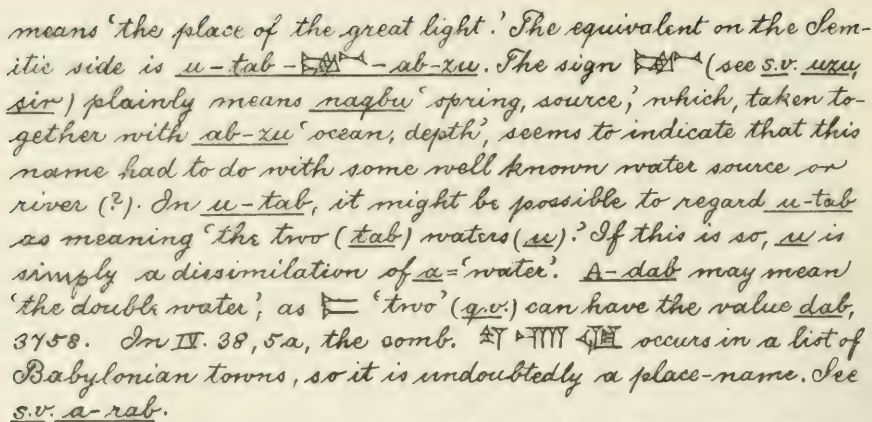 means 'the place of the great light.' The equivalent on the Sem-
itic side is u-tab- -ab-zu. The sign (see s.v. uzu,
sir) plainly means nagbu 'spring, source,' which, taken to-
gether with ab-zu 'ocean, depth', seems to indicate that this
name had to do with some well known water source or
river (?). In u-tab, it might be possible to regard u-tab
as meaning 'the two (tab) waters (u).' If this is so, u is
simply a dissimilation of a = 'water'. A-dab may mean
'the double water', as 'two' (q.v.) can have the value dab,
3758. In IV. 38, 5a, the comb. occurs in a list of
Babylonian towns, so it is undoubtedly a place-name. See
s.v. a-rab.